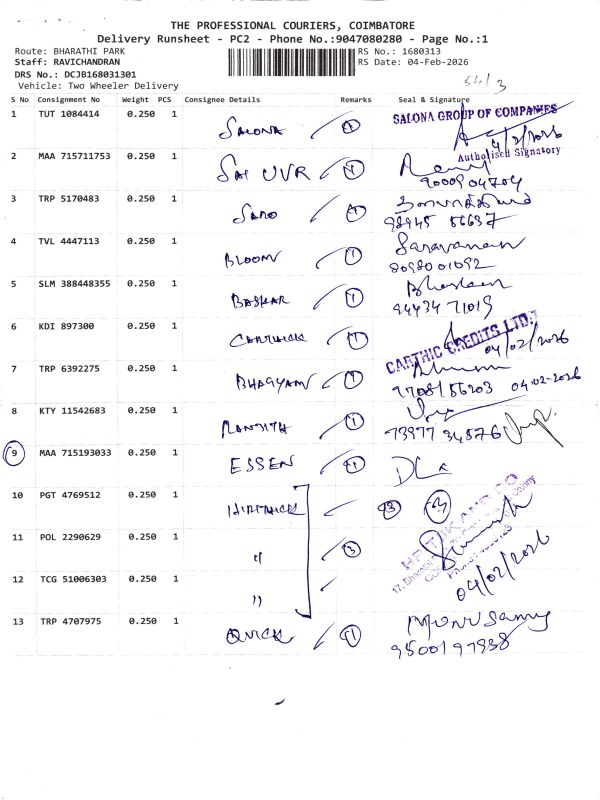 THE PROFESSIONAL COURIERS, COIMBATORE
Delivery Runsheet - PC2 - Phone No.:9047080280 - Page No.:1
Route: BHARATHI PARK
RS No.: 1680313
Staff: RAVICHANDRAN
RS Date: 04-Feb-2026
DRS No.: DCJB168031301
Vehicle: Two Wheeler Delivery
54/3
S No Consignment No Weight PCS Consignee Details Remarks Seal & Signature
1 TUT 1084414 0.250 1 SALONA 1 SALONA GROUP OF COMPANIES
4/2/2026
Authorised Signatory
2 MAA 715711753 0.250 1 SAI UVR 1
90009 04704
3 TRP 5170483 0.250 1 SARO 1
98945 56637
4 TVL 4447113 0.250 1 BLOOM 1 Saravanan
8098001092
5 SLM 388448355 0.250 1 BASKAR 1 Bhaskaran
94434 71019
6 KDI 897300 0.250 1 CARTHICK 1 CARTHIC CREDITS LTD.
04/02/2026
7 TRP 6392275 0.250 1 BHAGYAM 1
9708156203 04-02-2026
8 KTY 11542683 0.250 1 RANJITH 1
73977 34576
9 MAA 715193033 0.250 1 ESSEN 1 DL
10 PGT 4769512 0.250 1 HIRTHICK 3 3
11 POL 2290629 0.250 1 " 3
04/02/2026
12 TCG 51006303 0.250 1 "
13 TRP 4707975 0.250 1 QUICK 1 Munusamy
95001 97938